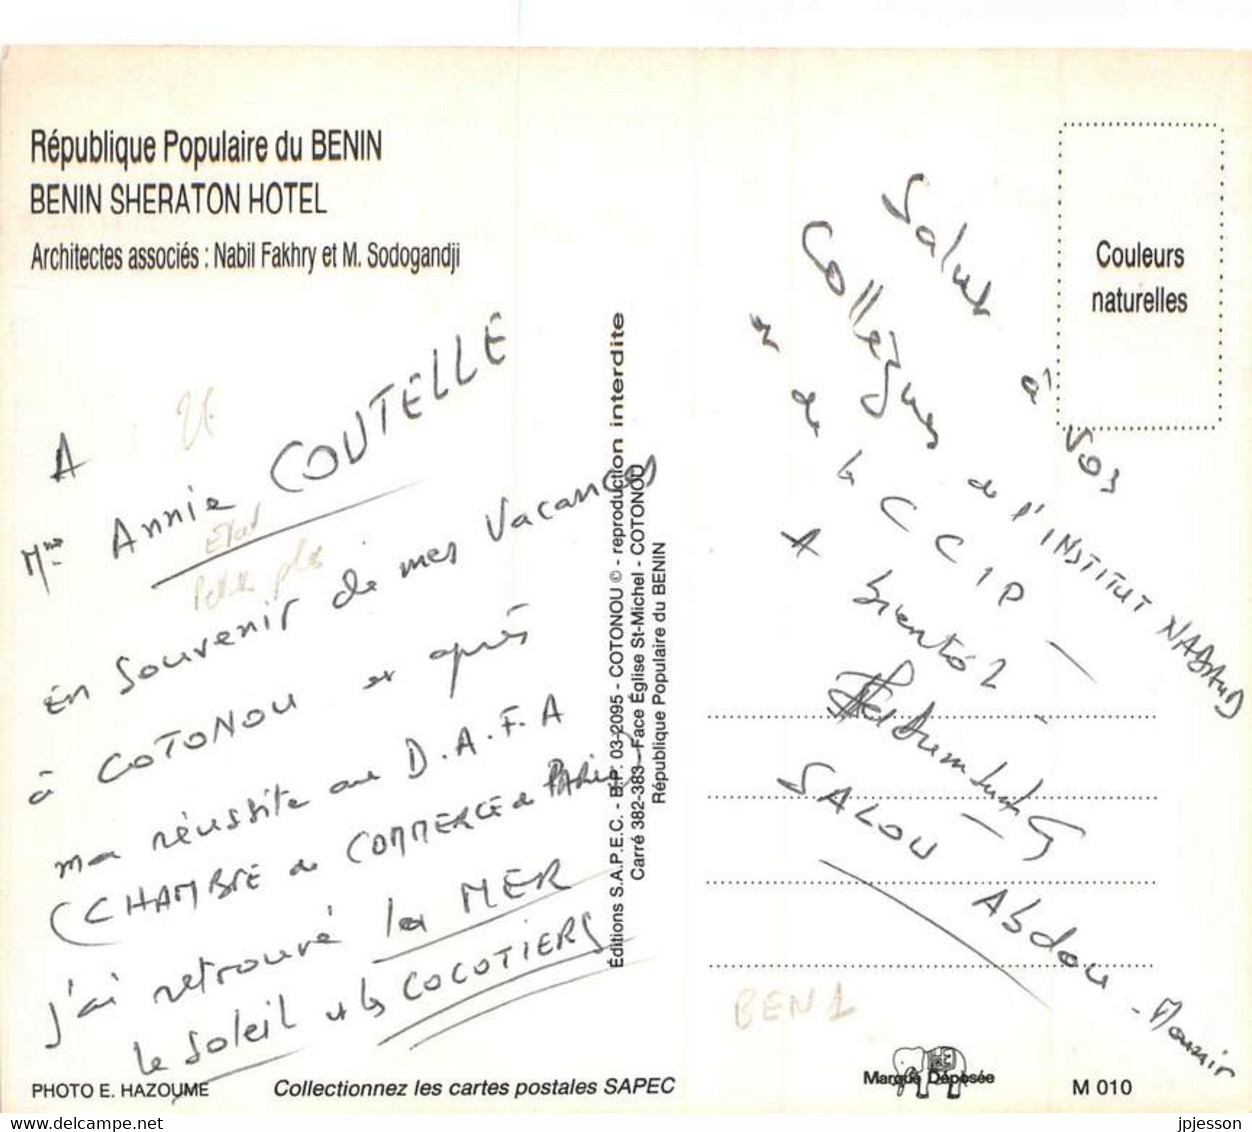 République Populaire du BENIN
BENIN SHERATON HOTEL
Architectes associés : Nabil Fakhry et M. Sodogandji
A
Mme Annie COUTELLE
Etat
En souvenir de mes vacances
à COTONOU et après
ma réussite au D.A.F.A
(CHAMBRE de COMMERCE de PARIS)
j'ai retrouvé la MER
le soleil et les COCOTIERS
PHOTO E. HAZOUME
Collectionnez les cartes postales SAPEC
Editions S.A.P.E.C. - B.P. 03-2095 - COTONOU © - reproduction interdite
Carré 382-383 - Face Église St-Michel - COTONOU
République Populaire du BENIN
Couleurs
naturelles
Salut à vos
Collègues de l'INSTITUT
et de la CCIP -
A bientôt
SALOU Abdou - Mounir
BEN 1
Marque Déposée
M 010
jpjesson